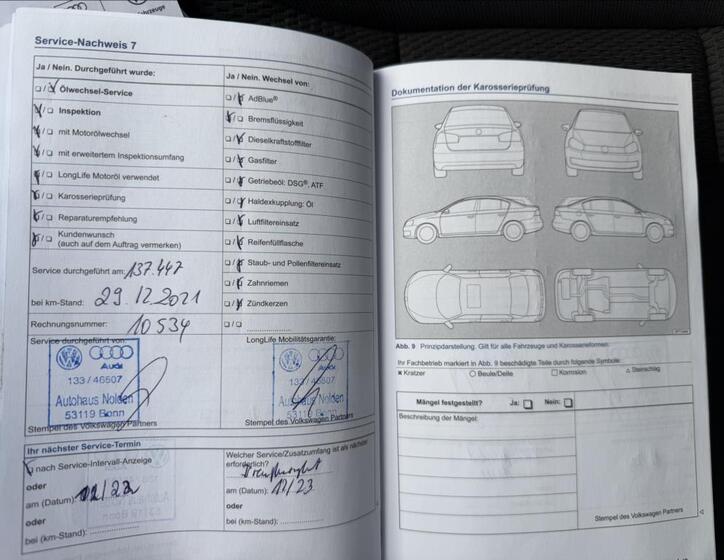 Service-Nachweis 7
Ja / Nein. Durchgeführt wurde:
Ölwechsel-Service
Inspektion
mit Motorölwechsel
mit erweitertem Inspektionsumfang
LongLife Motoröl verwendet
Karosserieprüfung
Reparaturempfehlung
Kundenwunsch
(auch auf dem Auftrag vermerken)
Service durchgeführt am: 137.447
bei km-Stand: 29.12.2021
Rechnungsnummer: 10534
Service durchgeführt von:
Audi
133/46507
Autohaus Nolden
53119 Bonn
Stempel des Volkswagen Partners
Ja / Nein. Wechsel von:
AdBlue®
Bremsflüssigkeit
Dieselkraftstofffilter
Gasfilter
Getriebeöl: DSG®, ATF
Haldexkupplung: Öl
Luftfiltereinsatz
Reifenfüllflasche
Staub- und Pollenfiltereinsatz
Zahnriemen
Zündkerzen
LongLife Mobilitätsgarantie:
Audi
133/46507
Autohaus Nolden
53119 Bonn
Stempel des Volkswagen Partners
Ihr nächster Service-Termin
nach Service-Intervall-Anzeige
oder
am (Datum): 12/22
oder
bei (km-Stand):
Welcher Service/Zusatzumfang ist als nächster
erforderlich?
am (Datum): 12/23
oder
bei (km-Stand):
Dokumentation der Karosserieprüfung
Abb. 9 Prinzipdarstellung. Gilt für alle Fahrzeuge und Karosserieformen.
Ihr Fachbetrieb markiert in Abb. 9 beschädigte Teile durch folgende Symbole:
Kratzer Beule/Delle Korrosion Steinschlag
Mängel festgestellt? Ja: Nein:
Beschreibung der Mängel:
Stempel des Volkswagen Partners